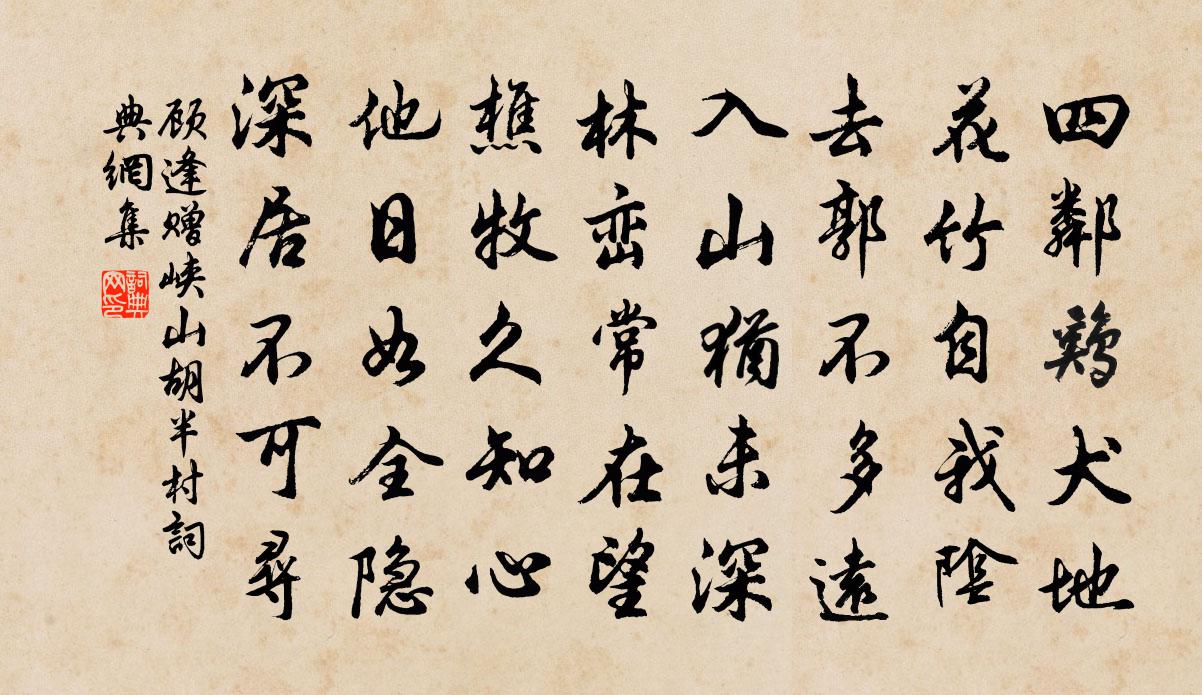 四鄰鷄犬地
花竹自我陰
去郭不多遠
入山猶未深
林峦常在望
樵牧久知心
他日如全隐
深居不可尋
顾逢赠峡山胡半村詞
典網集
詞典網印